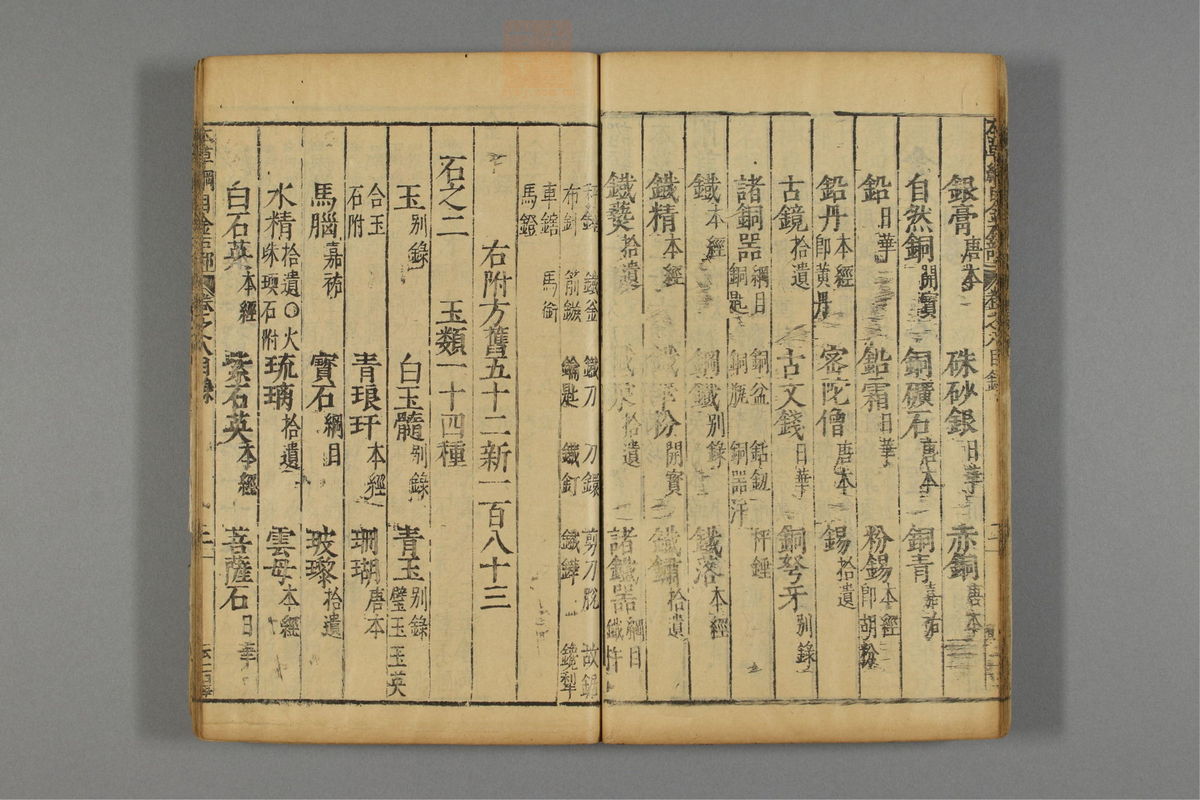 銀膏 唐本 硃砂銀 日華 赤銅 唐本
自然銅 開寶 銅礦石 唐本 銅青 嘉祐
鉛 日華 鉛霜 日華 粉錫 本經 即胡粉
鉛丹 本經 即黃丹 密陀僧 唐本 錫 拾遺
古鏡 拾遺 古文錢 日華 銅弩牙 別錄
諸銅器 綱目 銅匙 銅盆 銅器汗 秤錘
鐵 本經 鋼鐵 別錄 鐵落 本經
鐵精 本經 粉 開寶 鐵鏽 拾遺
鐵爇 拾遺 拾遺 諸鐵器 綱目 鐵杵
鐵釜 鐵刀 刀鐶 剪刀股 故鋸
布針 箭鏃 鑰匙 鐵釘 鐵鏵 犁
車轄 馬銜
馬鐙
右附方舊五十二新一百八十三
石之二 玉類一十四種
玉 別錄 白玉髓 別錄 青玉 別錄 璧玉 玉英
合玉石附 青琅玕 本經 珊瑚 唐本
馬腦 嘉祐 寶石 綱目 玻瓈 拾遺
水精 拾遺○火珠 瑌石附 琉璃 拾遺 雲母 本經
白石英 本經 紫石英 本經 菩薩石 日華